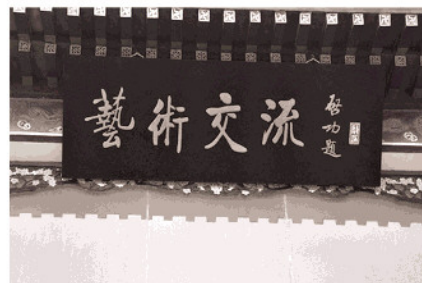 藝術交流
啓功題